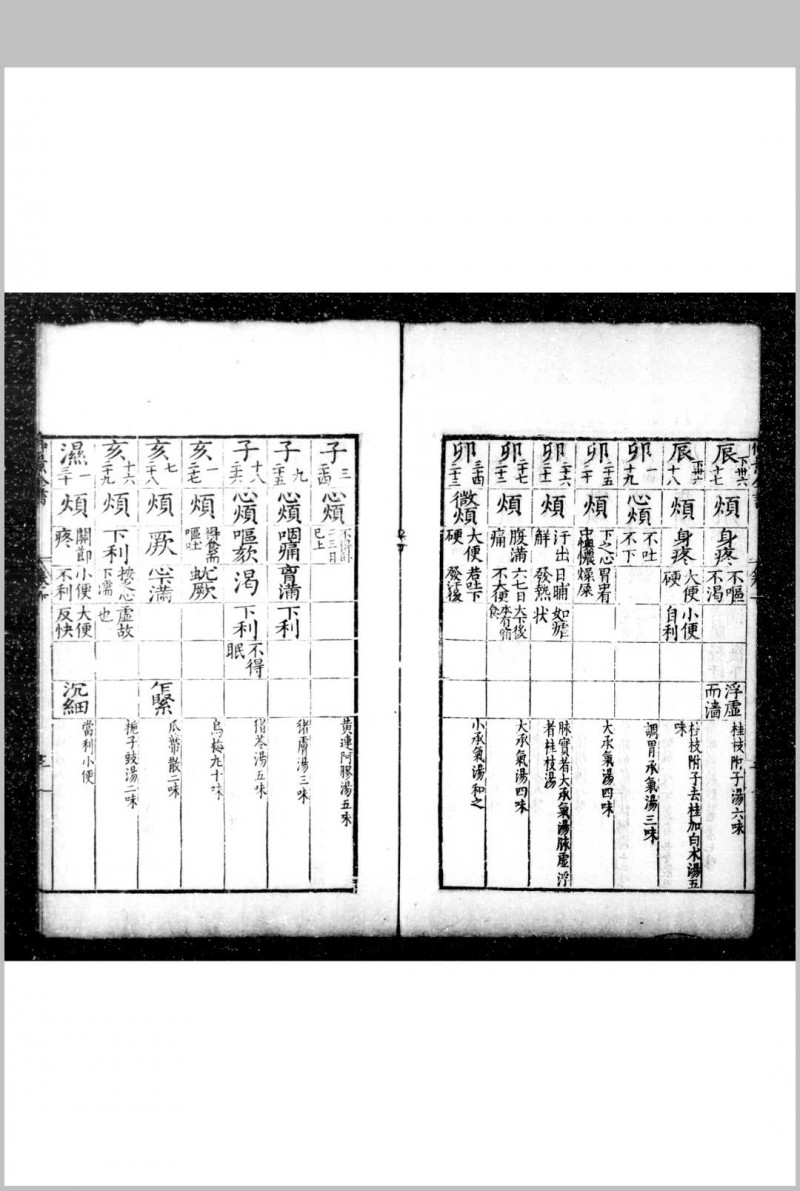 辰 下卅六 十七 煩 身疼 不嘔 不渴 浮虛 而濇 桂枝附子湯六味
辰 十八 煩 身疼 大便 硬 小便 自利 桂枝附子去桂加白朮湯五味
卯 一 十九 心煩 不吐 不下 調胃承氣湯三味
卯 二十五 煩 下之心 胃中有 燥屎 大承氣湯四味
卯 二十六 煩 汗出 解 日晡 發熱 如瘧 狀 脉實者大承氣湯脉虛浮者桂枝湯
卯 二十七 煩 腹滿 痛 六七日 不大便 大下後 大承氣湯四味
卯 二十四 二十三 微煩 大便 硬 若吐下 發汗後 小承氣湯和之
子 三 二十四 心煩 二三日 已上 黃連阿膠湯五味
子 九 二十五 心煩 咽痛 胷滿 下利 猪膚湯三味
子 十八 二十六 心煩 嘔欬 渴 下利 不得 眠 猪苓湯五味
亥 一 二十七 煩 嘔吐 蚘厥 烏梅丸十味
亥 七 二十八 煩 厥 心滿 乍緊 瓜蒂散二味
亥 十六 二十九 煩 下利 按之心 下濡 虛故 也 梔子豉湯二味
濕 一 三十 煩 關節 疼 小便 不利 大便 反快 沉細 當利小便